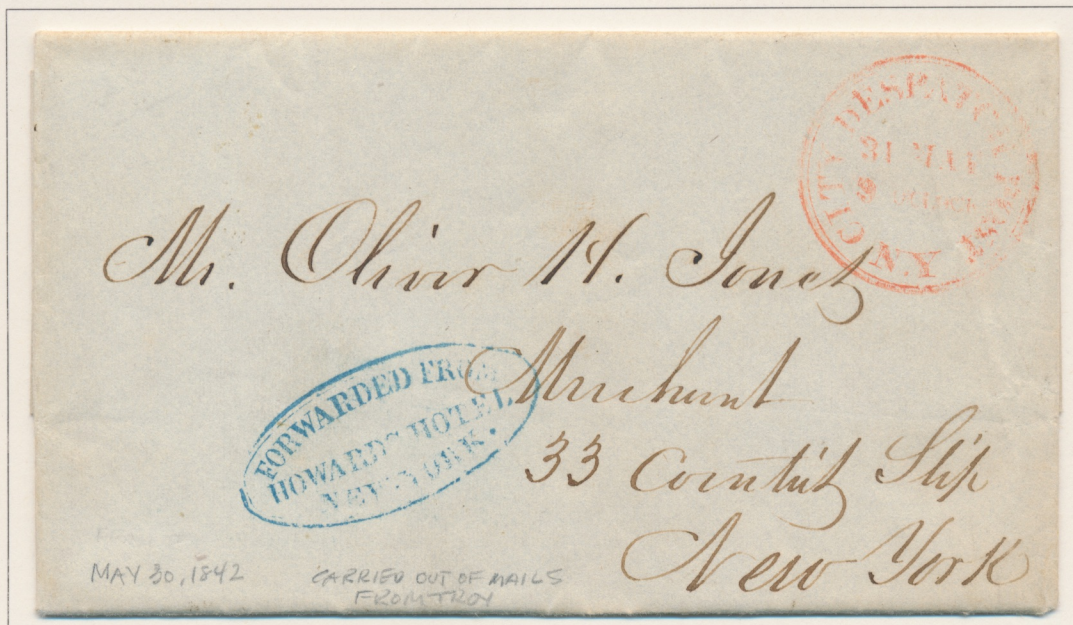 CITY DESPATCH POST
31 MAY
9 O'CLOCK
N.Y.
Mr. Oliver H. Jones
Merchant
33 Coentis Slip
New York
FORWARDED FROM
HOWARD'S HOTEL
NEW-YORK.
MAY 30, 1842
CARRIED OUT OF MAILS
FROM TROY